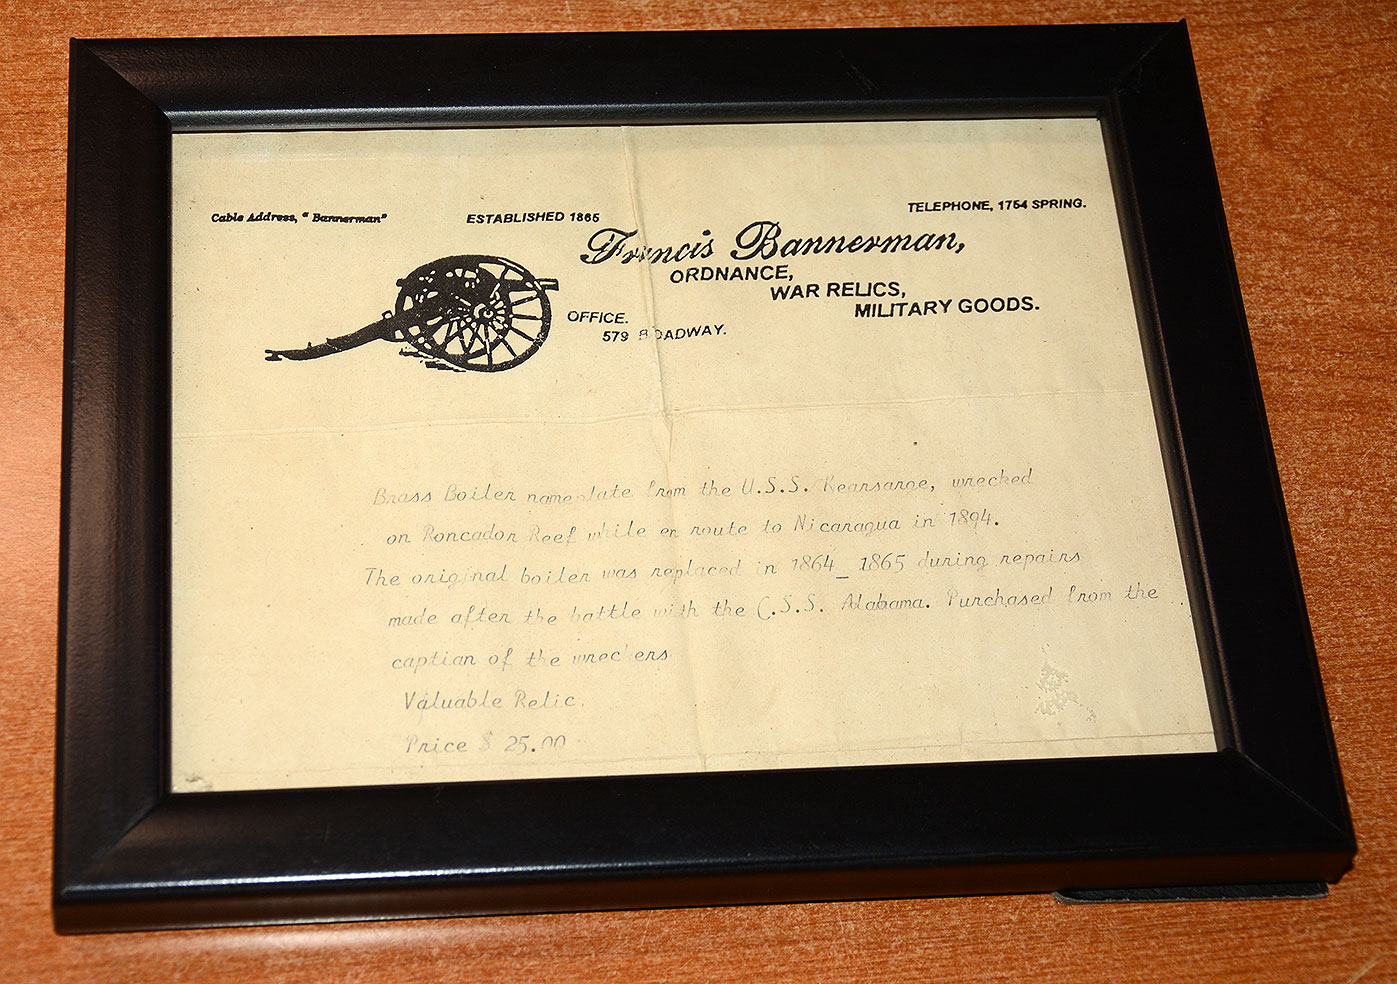 Cable Address, " Bannerman"
ESTABLISHED 1865
TELEPHONE, 1754 SPRING.
Francis Bannerman,
ORDNANCE,
WAR RELICS,
MILITARY GOODS.
OFFICE.
579 BROADWAY.
Brass Boiler nameplate from the U.S.S. Kearsarge, wrecked
on Roncador Reef while en route to Nicaragua in 1894.
The original boiler was replaced in 1864_1865 during repairs
made after the battle with the C.S.S. Alabama. Purchased from the
captian of the wreckers
Valuable Relic.
Price $ 25.00